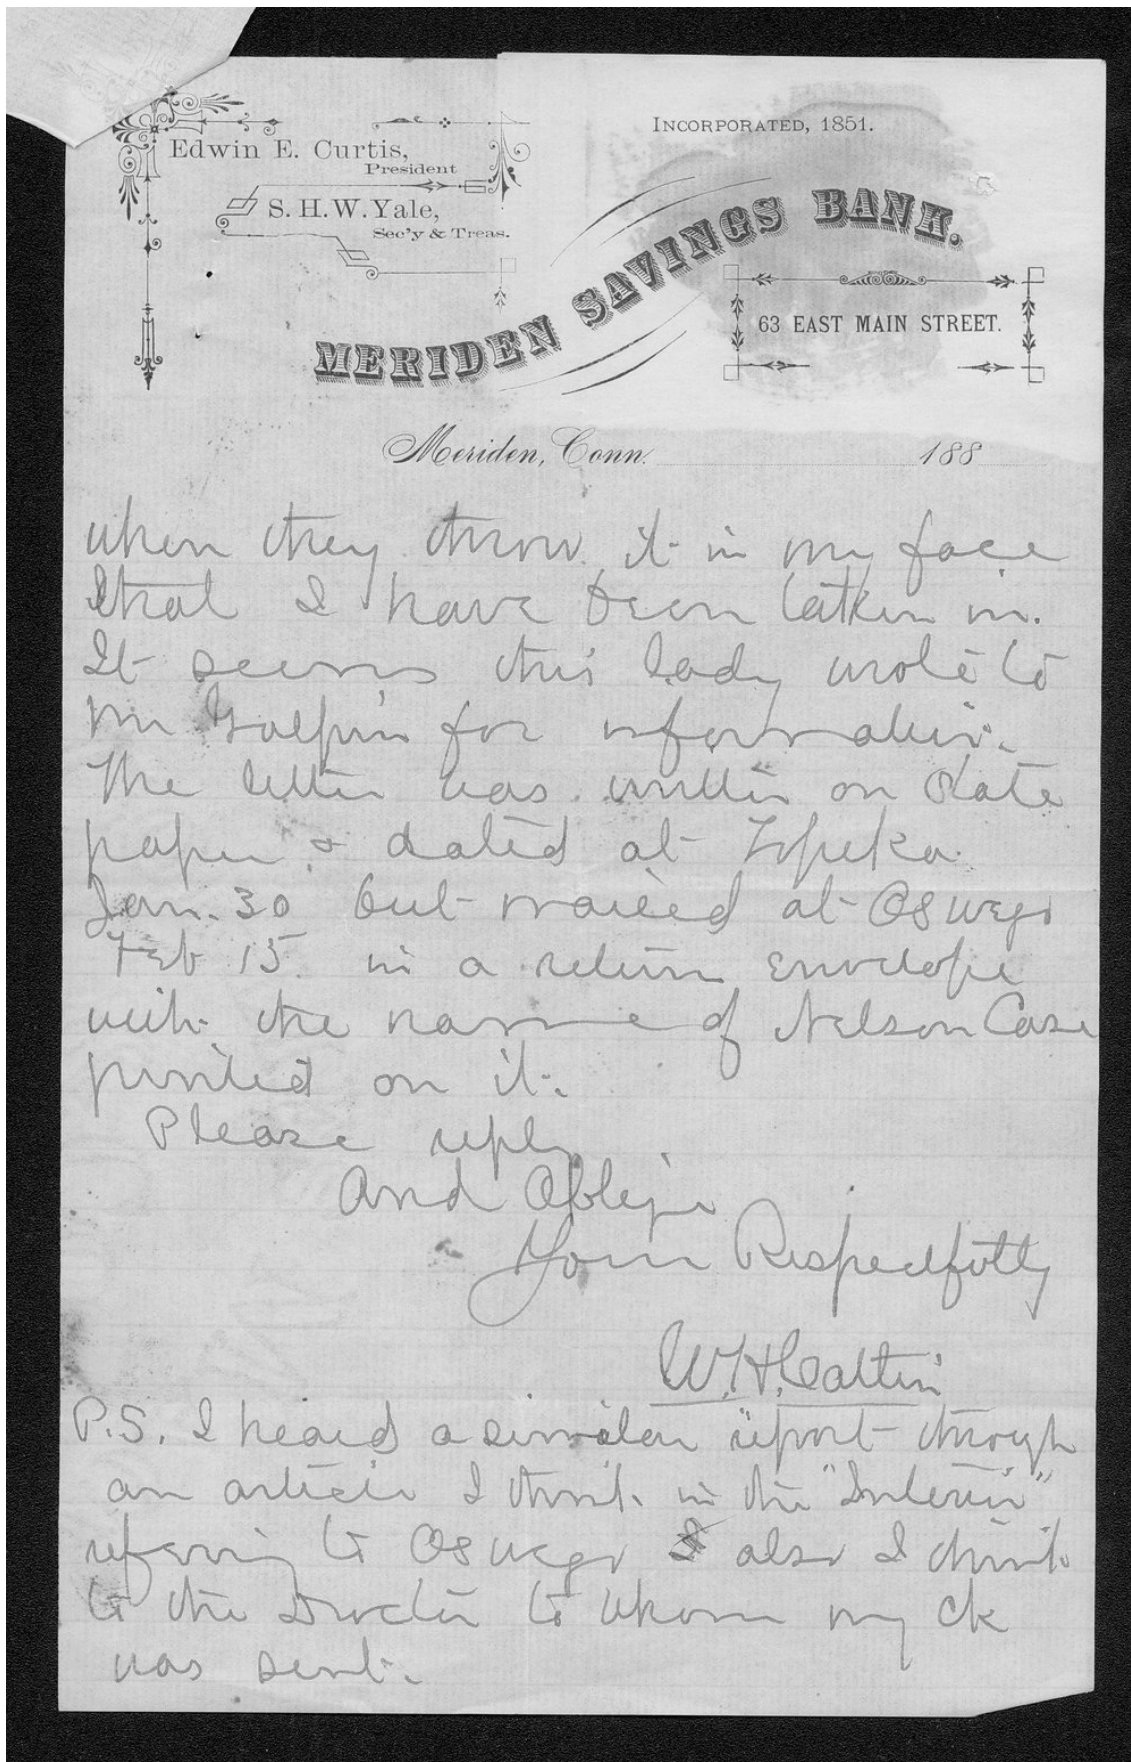 Edwin E. Curtis,
President
S. H. W. Yale,
Sec'y & Treas.
INCORPORATED, 1851.
MERIDEN SAVINGS BANK.
63 EAST MAIN STREET.
Meriden, Conn. 188
when they throw it in my face
that I have been taken in.
It seems this lady wrote to
Mr Galpin for information.
The letter was written on State
paper & dated at Topeka
Jan. 30 but mailed at Oswego
Feb 15 in a return envelope
with the name of Nelson Case
printed on it.
Please reply
And Oblige
Yours Respectfully
W. H. Catlin
P.S. I heard a similar report through
an article I think in the "Interior"
referring to Oswego & also I think
to the Doctor to whom my ck
was sent.